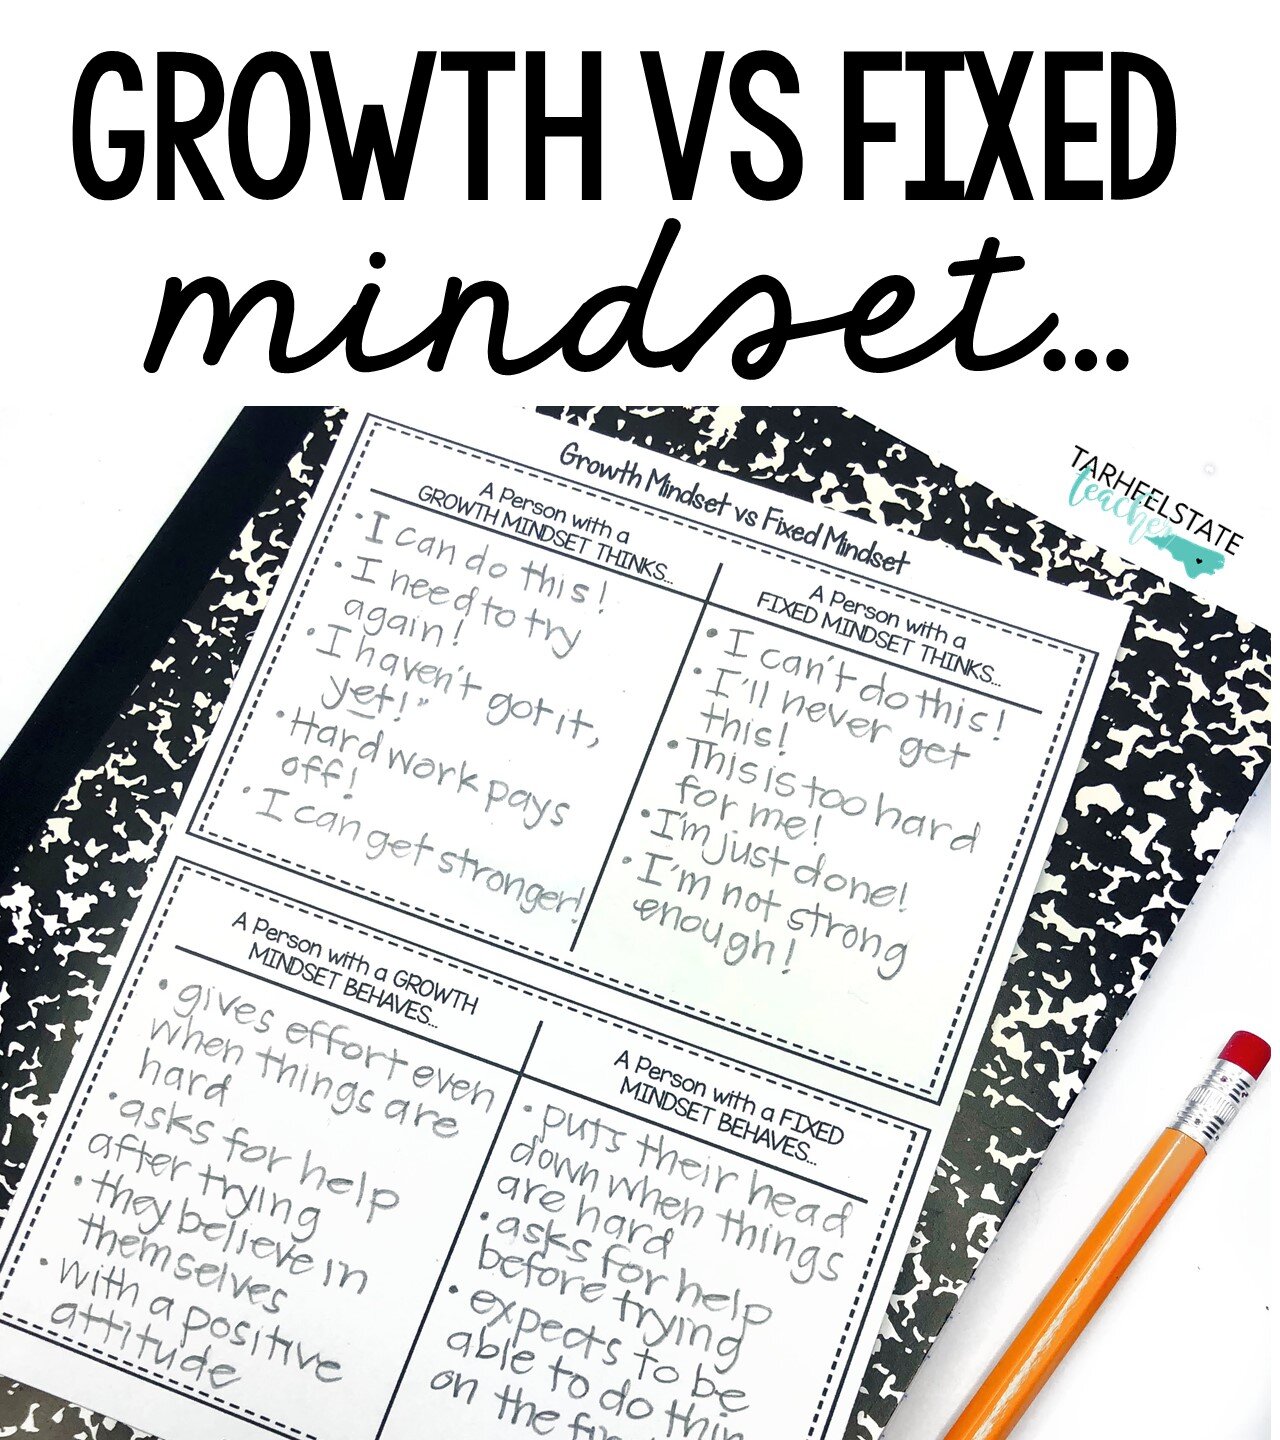 GROWTH VS FIXED
mindset...
TARHEELSTATE
teacher
Growth Mindset vs Fixed Mindset
A Person with a
GROWTH MINDSET THINKS...
• I can do this!
• I need to try
again!
• I haven't got it,
yet!"
• Hard work pays
off!
• I can get stronger!
A Person with a
FIXED MINDSET THINKS...
• I can't do this!
• I'll never get
this!
• This is too hard
for me!
• I'm just done!
• I'm not strong
enough!
A Person with a GROWTH
MINDSET BEHAVES...
• gives effort even
when things are
hard
• asks for help
after trying
• they believe in
themselves
• with a positive
attitude
A Person with a FIXED
MINDSET BEHAVES...
• puts their head
down when things
are hard
• asks for help
before trying
• expects to be
able to do thin
on the